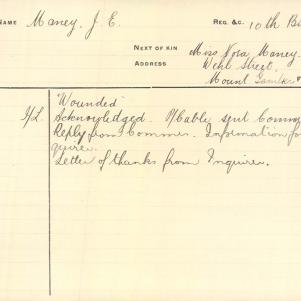 NAME Maney, J. E. REG. &C. 10th Ba
NEXT OF KIN Miss Nora Maney.
ADDRESS Wehl Street,
Mount Gambier
"Wounded"
I/L Acknowledged. O/Cable sent Commr
Reply from Commr. Information fo
quirer.
Letter of thanks from Inquirer.